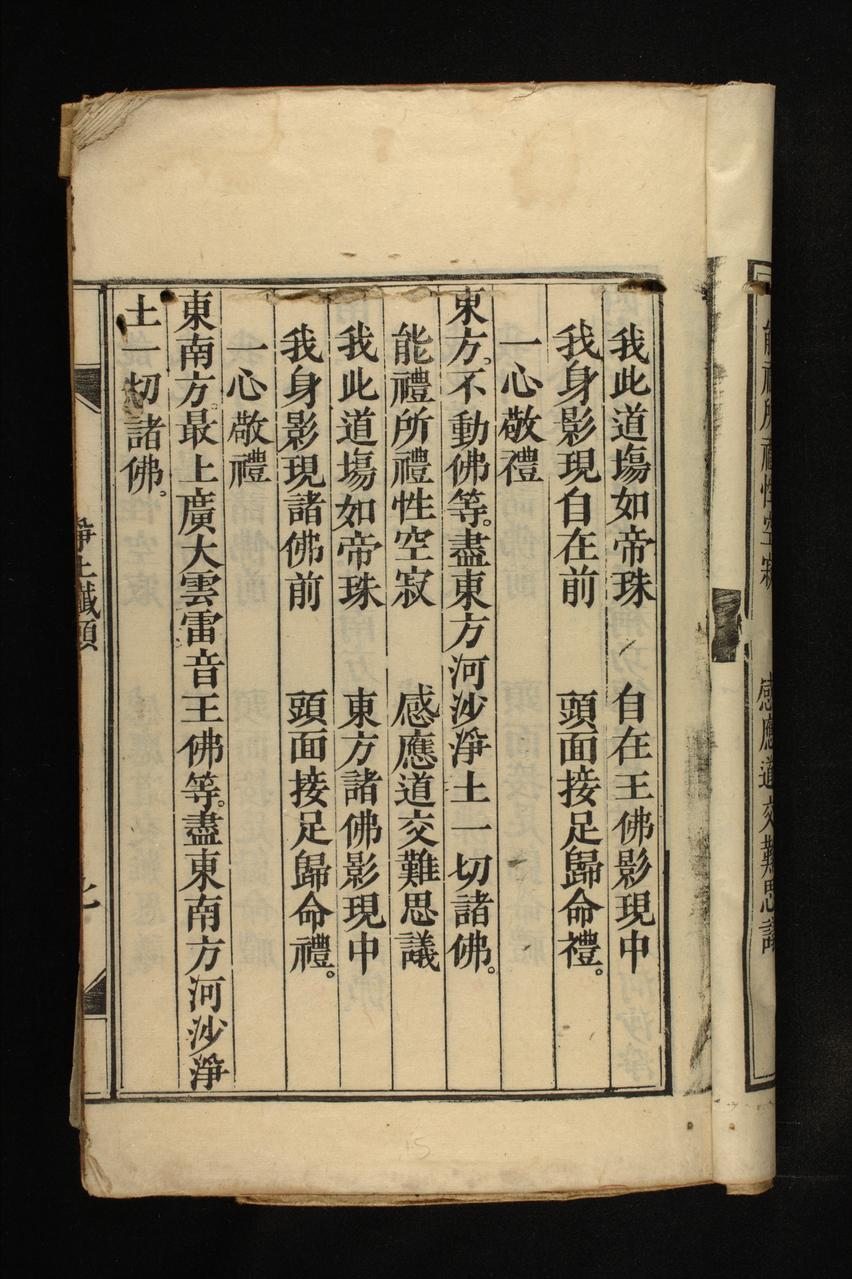 能禮所禮性空寂　感應道交難思議
我此道塲如帝珠　自在王佛影現中
我身影現自在前　頭面接足歸命禮。
一心敬禮
東方。不動佛等。盡東方河沙淨土一切諸佛。
能禮所禮性空寂　感應道交難思議
我此道塲如帝珠　東方諸佛影現中
我身影現諸佛前　頭面接足歸命禮。
一心敬禮
東南方。最上廣大雲雷音王佛等。盡東南方河沙淨
土一切諸佛。
淨土懺願